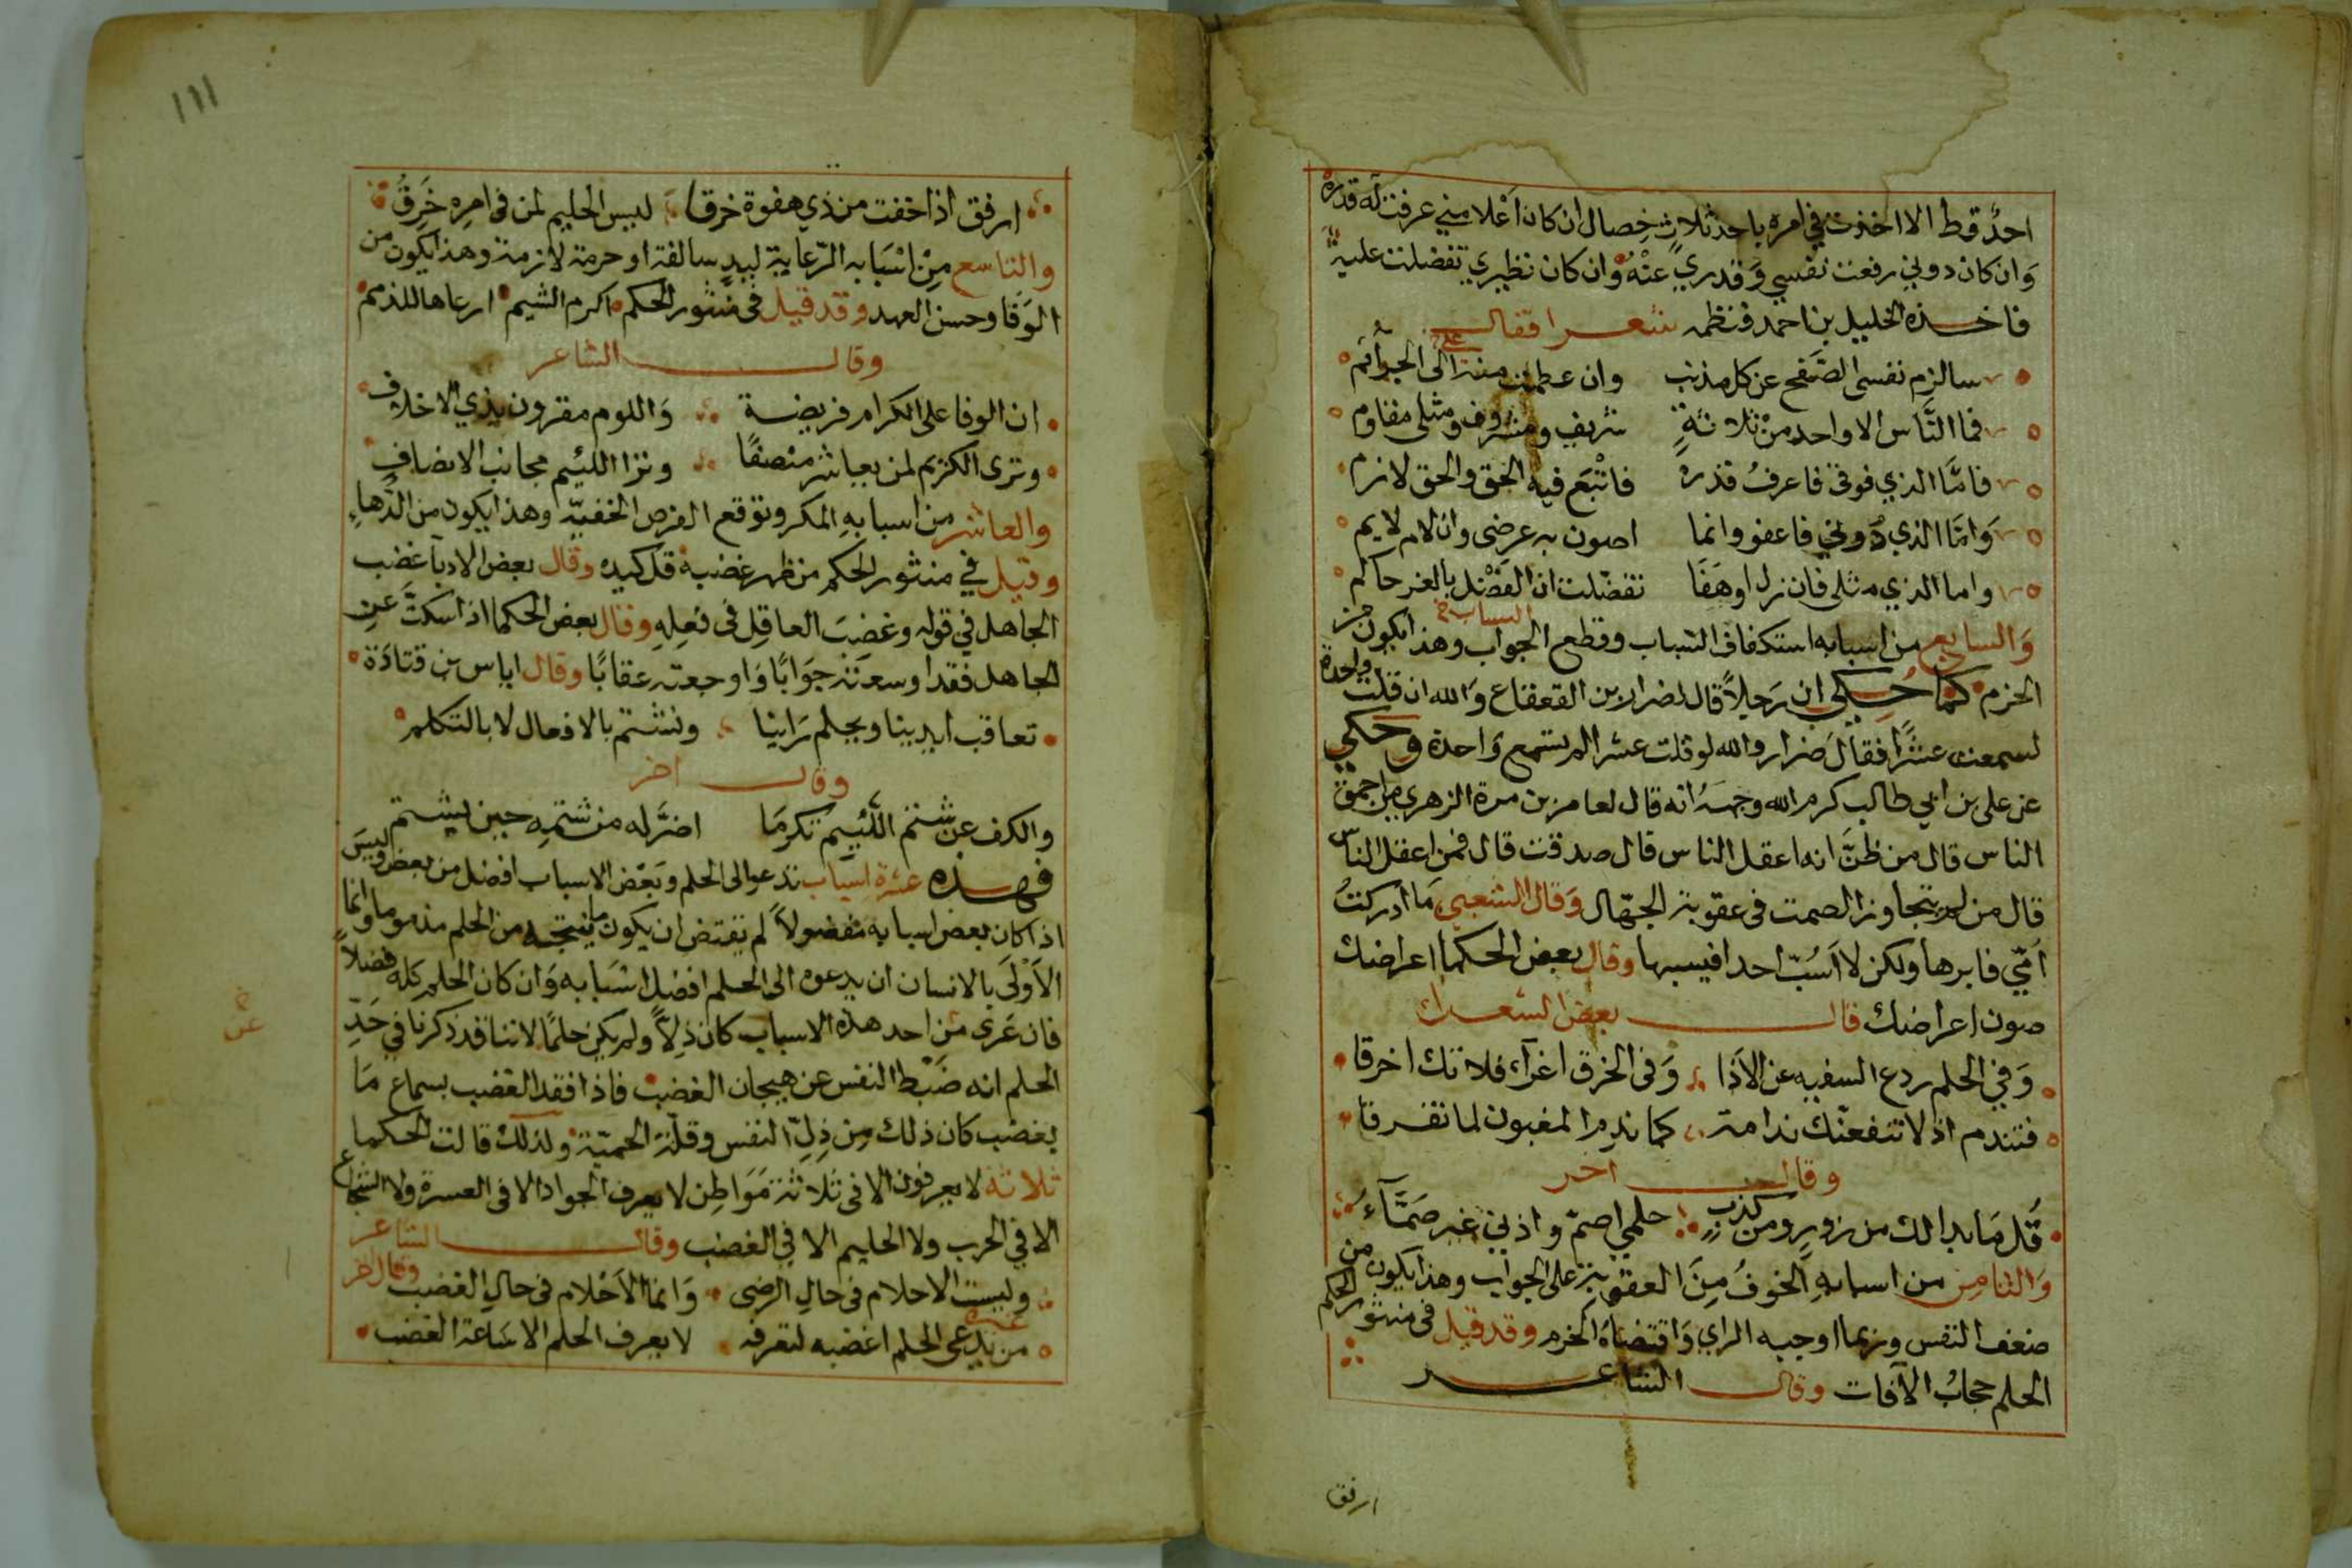 احدٌ قط الا اخذت في امره باحد ثلاث خصال ان كان اعلا مني عرفت له قدره
وان كان دوني رفعت نفسي وقدري عنه وان كان نظيري تفضلت عليه
فاخذه الخليل بن احمد فنظمه شعرا فقال
سالزم نفسي الصفح عن كل مذنب وان عظمت منه الي الجرائم
فما الناس الا واحد من ثلاثة شريف ومشروف ومثلي مقاوم
فامّا الذي فوقي فاعرف قدره فاتبع فيه الحق والحق لازم
وامّا الذي دوني فاعفو وانما اصون به عرضي وان لام لايم
واما الذي مثلي فان زل او هفا تفضلت ان الفضل بالغر حاكم
والسابع من اسبابه استكفاف السباب وقطع الجواب وهذا يكون من
الحزم كما حكي ان رجلاً قال لضرار بن القعقاع والله ان قلت واحدة
لسمعت عشرًا فقال ضرار والله لو قلت عشرا لم تسمع واحدة وحكي
عن علي بن ابي طالب كرم الله وجهه انه قال لعامر بن مرة الزهري من احمق
الناس قال من ظنّ انه اعقل الناس قال صدقت قال فمن اعقل الناس
قال من لم يتجاوز الصمت في عقوبة الجهّال وقال الشعبي ما ادركتُ
اُمّي فابرها ولكن لا اَسُبّ احدا فيسبها وقال بعض الحكما اعراضك
صون اعراضك قال بعض الشعرا
وفي الحلم ردع السفيه عن الاذا وفي الخرق اغرآء فلا تك اخرقا
فتندم اذ لا تنفعنّك ندامة كما ندم المغبون لما تفرقا
وقال اخر
قُل مَا بدا لك من زورٍ ومن كذبٍ حلمي اصمّ واذني غير صَمّآء
والثامن من اسبابه الخوفُ مِنَ العقوبة على الجواب وهذا يكون من
ضعف النفس وربما اوجبه الراي واقتضاه الحزم وقد قيل في منثور الحكم
الحلم حجابُ الآفات وقال الشاعر
ارفق
١١١
ارفق اذا خفت من ذي هفوة خرقا ليس الحليم لمن في امره خَرِقُ
والتاسع مِنْ اسْبَابه الرّعاية ليدٍ سالفة او حرمة لازمة وهذا يكون من
الوَفا وحسن العهد وقد قيل في منثور الحكم اكرم الشيم ارعاها للذمم
وقال الشاعر
ان الوفا على الكرام فريضة واللوم مقرون بذي الاخلاف
وترى الكريم لمن يعاشر منصفًا وترا اللئيم مجانب الانصاف
والعاشر من اسبابهِ المكر وتوقع الفرص الخفيّه وهذا يكون من الدّهاءِ
وقيل في منثور الحكم من ظهر غضبه قل كيده وقال بعض الادبآ غضب
الجاهل في قوله وغضب العاقِل في فعلِهِ وقال بعض الحكما اذا سكتَّ عن
الجاهل فقد اوسعته جوابًا واوجعته عقابًا وقال اياس بن قتادة
تعاقب ايدينا ويحلم رَاينا ونشتم بالافعال لا بالتكلم
وقال اخر
والكف عن شتم اللّئيم تكرمَا اضرّ له من شتمِهِ حين يشتم
فهذه عشرة اسباب تدعو الى الحلم وبَعْض الاسباب افضل من بعض وليسَ
اذا كان بعض اسبابه مفضولاً لم يقتض ان يكون ما ينتجه من الحلم مذموما وانما
الاَوْلَى بالانسان ان يدعوه الى الحلم افضل اسْبَابه وَان كان الحلم كله فضلاً
فان عَرى من احد هذه الاسباب كان ذِلاًّ ولم يكن حلمًا لاننا قد ذكرنا في حَدّ
عن
الحلم انه ضَبْط النفس عن هيجان الغضب فاذا فقد الغضب بسماع مَا
يغضب كان ذلك من ذِلِّ النفس وقلّة الحميّة ولذلك قالت الحكما
ثلاثة لا يعرفون الا في ثلاثة مَوَاطِن لا يعرف الجواد الا في العسرة ولا الشجاع
الا في الحرب ولا الحليم الا في الغضب وقال الشاعر
وليست الاحلام في حال الرضى وَانما الاَحْلام في حالِ الغضب وقال اخر
من يدعي الحلم اغضبه لتعرفه لا يعرف الحلم الا سَاعة الغضب